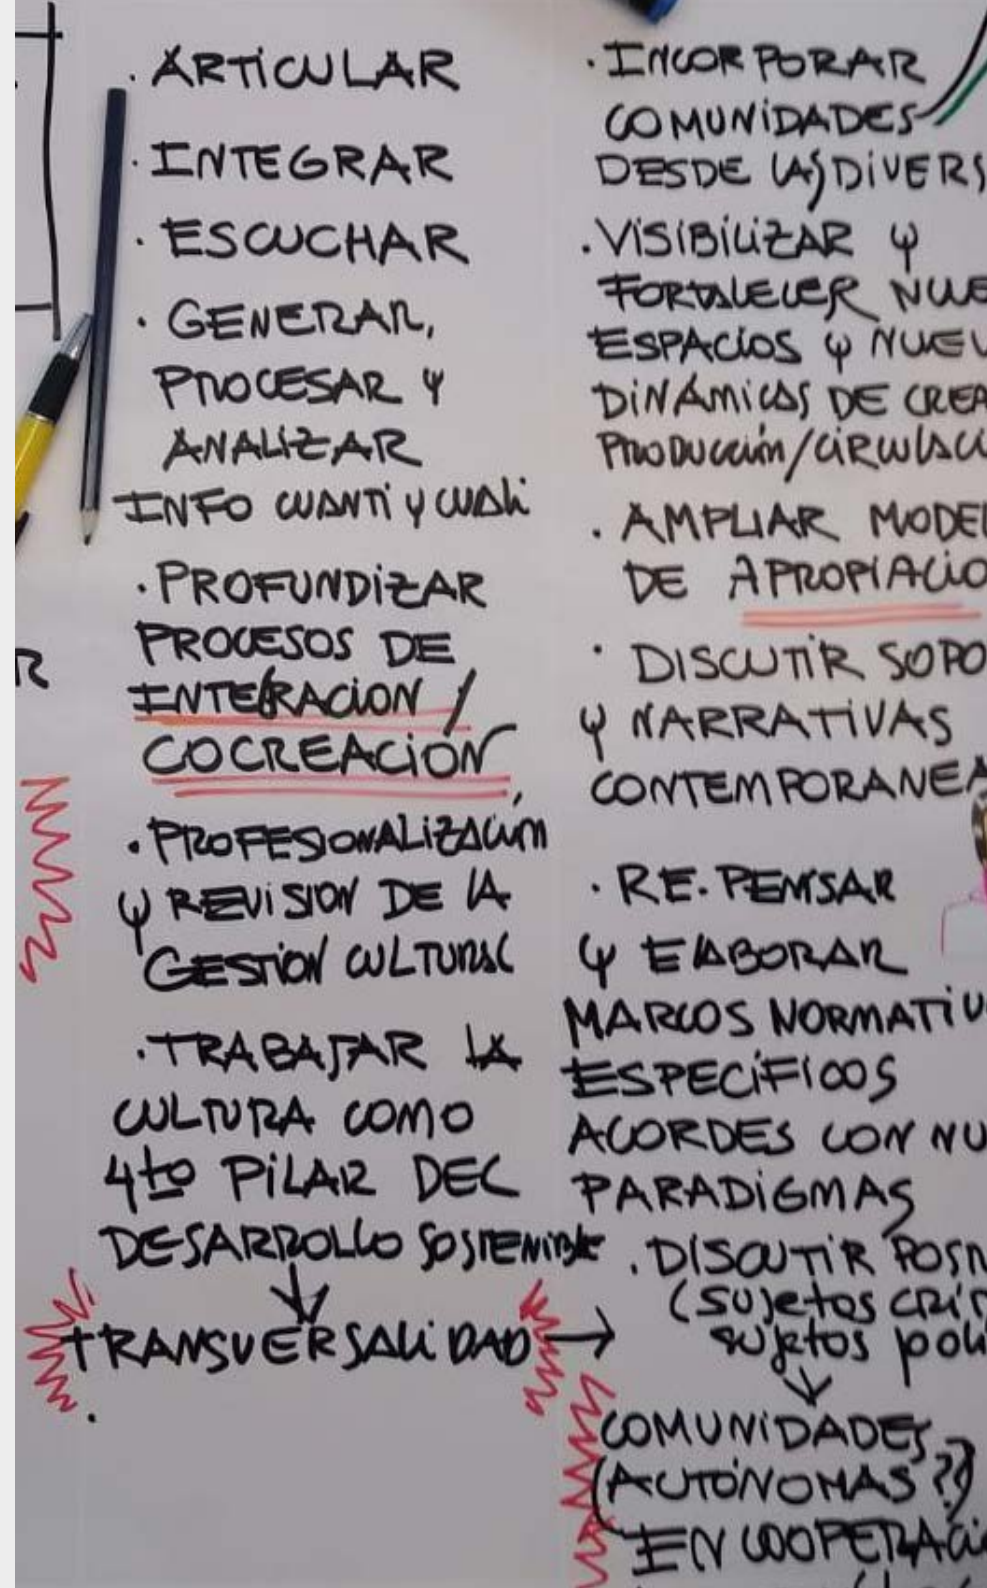 · ARTICULAR
· INTEGRAR
· ESCUCHAR
· GENERAR,
PROCESAR Y
ANALIZAR
INFO CUANTI Y CUALI
· PROFUNDIZAR
PROCESOS DE
INTEGRACION /
COCREACIÓN
· PROFESIONALIZACIÓN
Y REVISION DE LA
GESTION CULTURAL
· TRABAJAR LA
CULTURA COMO
4to PILAR DEL
DESARROLLO SOSTENIBLE
TRANSVERSALIDAD
· INCORPORAR
COMUNIDADES
DESDE LAS DIVERS
· VISIBILIZAR Y
FORTALECER NUE
ESPACIOS Y NUEV
DINÁMICAS DE CREA
PRODUCCIÓN/CIRCULACI
· AMPLIAR MODEL
DE APROPIACIO
· DISCUTIR SOPO
Y NARRATIVAS
CONTEMPORANEA
· RE.PENSAR
Y ELABORAR
MARCOS NORMATIV
ESPECÍFICOS
ACORDES CON NU
PARADIGMAS
· DISCUTIR
(sujetos
sujetos
COMUNIDADES
(AUTÓNOMAS??)
EN COOPERACI